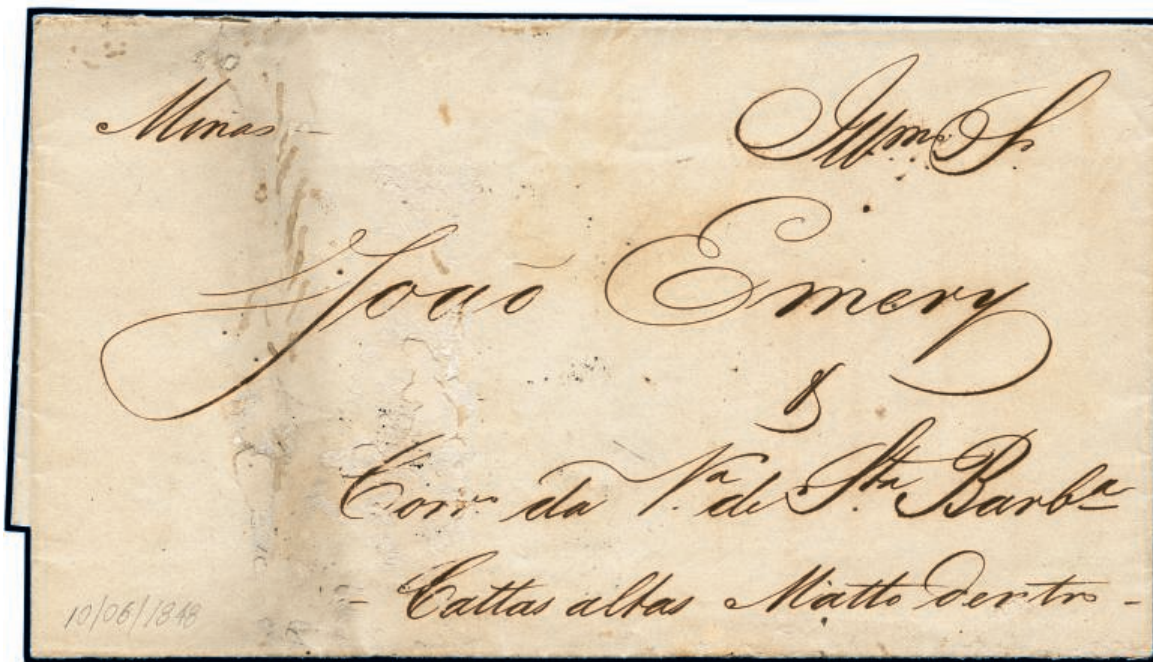 Minas - Illmo Sr
João Emery
&
Corro da Va de Sta Barba
- Cattas altas Matto dentro -
10/06/1848